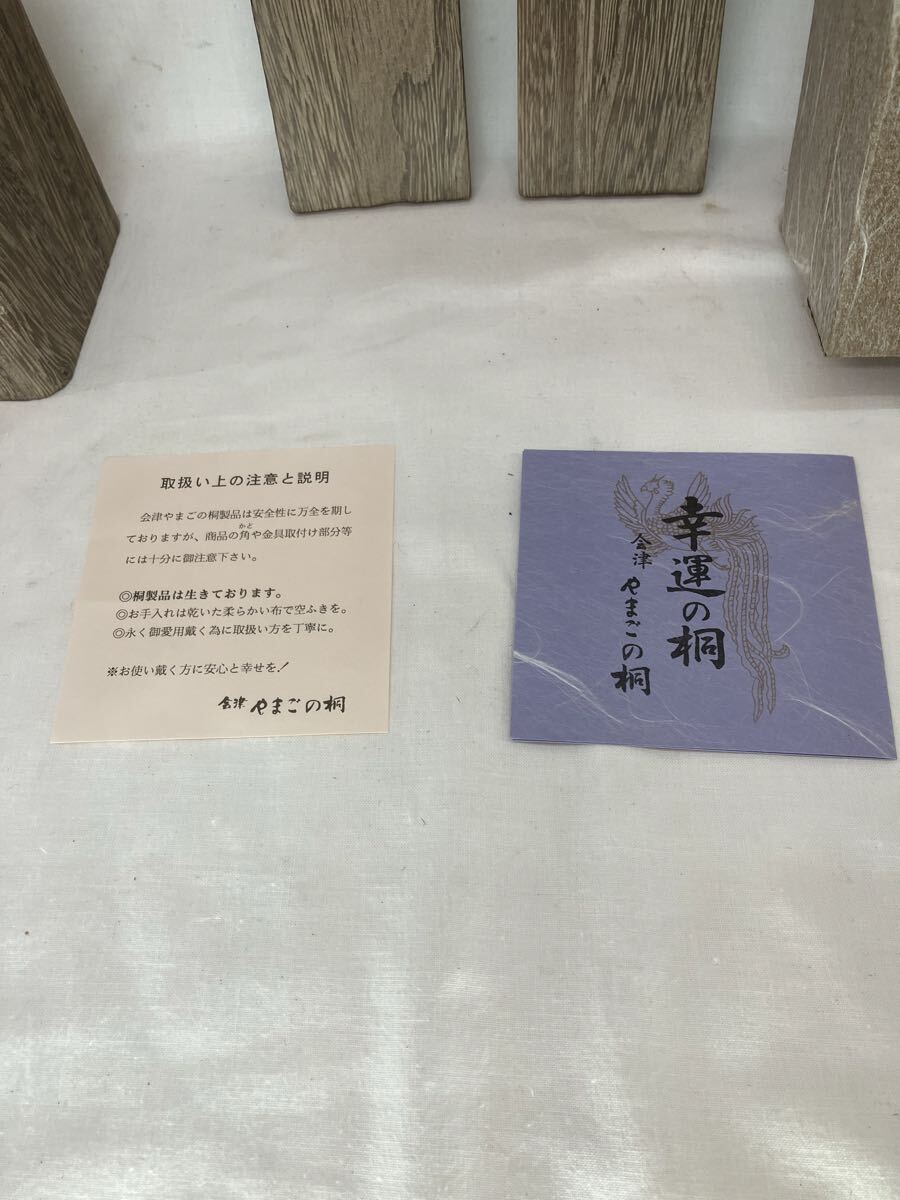 取扱い上の注意と説明
会津やまごの桐製品は安全性に万全を期し
ておりますが、商品の角や金具取付け部分等
かど
には十分に御注意下さい。
◎桐製品は生きております。
◎お手入れは乾いた柔らかい布で空ふきを。
◎永く御愛用戴く為に取扱い方を丁寧に。
※お使い戴く方に安心と幸せを！
会津 やまごの桐
幸運の桐
会津 やまごの桐